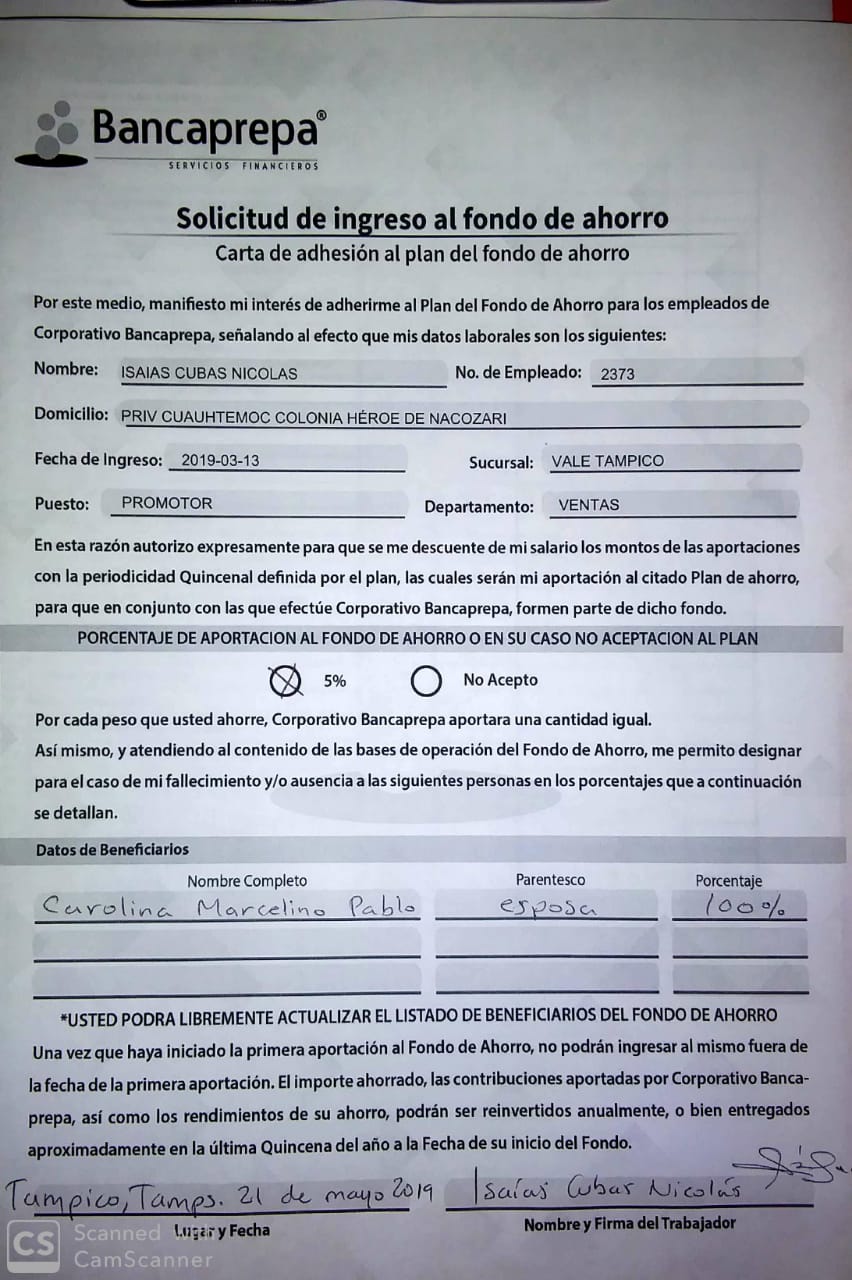 Bancaprepa®
SERVICIOS FINANCIEROS
Solicitud de ingreso al fondo de ahorro
Carta de adhesión al plan del fondo de ahorro
Por este medio, manifiesto mi interés de adherirme al Plan del Fondo de Ahorro para los empleados de
Corporativo Bancaprepa, señalando al efecto que mis datos laborales son los siguientes:
Nombre: ISAIAS CUBAS NICOLAS No. de Empleado: 2373
Domicilio: PRIV CUAUHTEMOC COLONIA HÉROE DE NACOZARI
Fecha de Ingreso: 2019-03-13 Sucursal: VALE TAMPICO
Puesto: PROMOTOR Departamento: VENTAS
En esta razón autorizo expresamente para que se me descuente de mi salario los montos de las aportaciones
con la periodicidad Quincenal definida por el plan, las cuales serán mi aportación al citado Plan de ahorro,
para que en conjunto con las que efectúe Corporativo Bancaprepa, formen parte de dicho fondo.
PORCENTAJE DE APORTACION AL FONDO DE AHORRO O EN SU CASO NO ACEPTACION AL PLAN
5% No Acepto
Por cada peso que usted ahorre, Corporativo Bancaprepa aportara una cantidad igual.
Así mismo, y atendiendo al contenido de las bases de operación del Fondo de Ahorro, me permito designar
para el caso de mi fallecimiento y/o ausencia a las siguientes personas en los porcentajes que a continuación
se detallan.
Datos de Beneficiarios
Nombre Completo Parentesco Porcentaje
Carolina Marcelino Pablo esposa 100%
*USTED PODRA LIBREMENTE ACTUALIZAR EL LISTADO DE BENEFICIARIOS DEL FONDO DE AHORRO
Una vez que haya iniciado la primera aportación al Fondo de Ahorro, no podrán ingresar al mismo fuera de
la fecha de la primera aportación. El importe ahorrado, las contribuciones aportadas por Corporativo Banca-
prepa, así como los rendimientos de su ahorro, podrán ser reinvertidos anualmente, o bien entregados
aproximadamente en la última Quincena del año a la Fecha de su inicio del Fondo.
Tampico, Tamps. 21 de mayo 2019 Isaías Cubas Nicolás
Lugar y Fecha Nombre y Firma del Trabajador
CS Scanned with
CamScanner